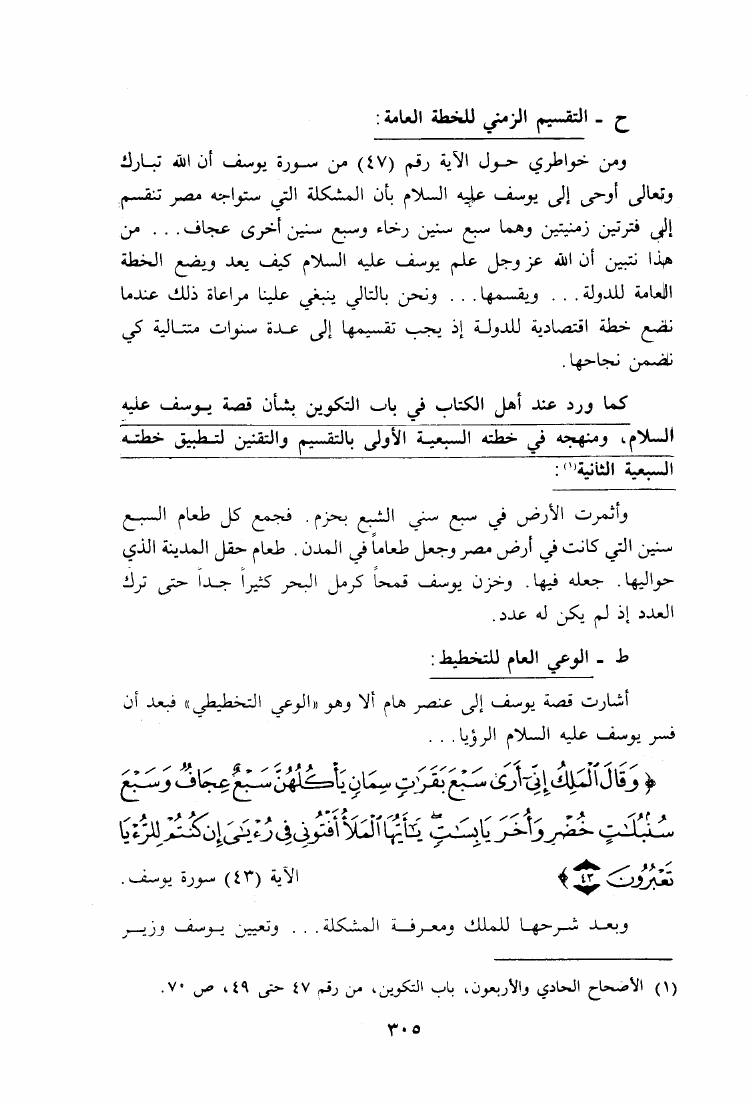 ح - التقسيم الزمني للخطة العامة :
ومن خواطري حول الآية رقم (٤٧) من سورة يوسف أن الله تبارك
وتعالى أوحى إلى يوسف عليه السلام بأن المشكلة التي ستواجه مصر تنقسم
إلى فترتين زمنيتين وهما سبع سنين رخاء وسبع سنين أخرى عجاف . . . من
هذا نتبين أن الله عز وجل علم يوسف عليه السلام كيف يعد ويضع الخطة
العامة للدولة . . . ويقسمها . . . ونحن بالتالي ينبغي علينا مراعاة ذلك عندما
نضع خطة اقتصادية للدولة إذ يجب تقسيمها إلى عدة سنوات متتالية كي
نضمن نجاحها .
كما ورد عند أهل الكتاب في باب التكوين بشأن قصة يوسف عليه
السلام ، ومنهجه في خطته السبعية الأولى بالتقسيم والتقنين لتطبيق خطته
السبعية الثانية(١) :
وأثمرت الأرض في سبع سني الشبع بحزم . فجمع كل طعام السبع
سنين التي كانت في أرض مصر وجعل طعاماً في المدن . طعام حقل المدينة الذي
حواليها . جعله فيها . وخزن يوسف قمحاً كرمل البحر كثيراً جداً حتى ترك
العدد إذ لم يكن له عدد .
ط - الوعي العام للتخطيط :
أشارت قصة يوسف إلى عنصر هام ألا وهو «الوعي التخطيطي» فبعد أن
فسر يوسف عليه السلام الرؤيا . . .
﴿ وَقَالَ ٱلْمَلِكُ إِنِّىٓ أَرَىٰ سَبْعَ بَقَرَٰتٍ سِمَانٍ يَأْكُلُهُنَّ سَبْعٌ عِجَافٌ وَسَبْعَ
سُنۢبُلَٰتٍ خُضْرٍ وَأُخَرَ يَابِسَٰتٍ ۖ يَٰٓأَيُّهَا ٱلْمَلَأُ أَفْتُونِى فِى رُءْيَٰىَ إِن كُنتُمْ لِلرُّءْيَا
تَعْبُرُونَ ٤٣ ﴾ الآية (٤٣) سورة يوسف .
وبعد شرحها للملك ومعرفة المشكلة . . . وتعيين يوسف وزير
(١) الأصحاح الحادي والأربعون ، باب التكوين ، من رقم ٤٧ حتى ٤٩ ، ص ٧٠ .
٣٠٥